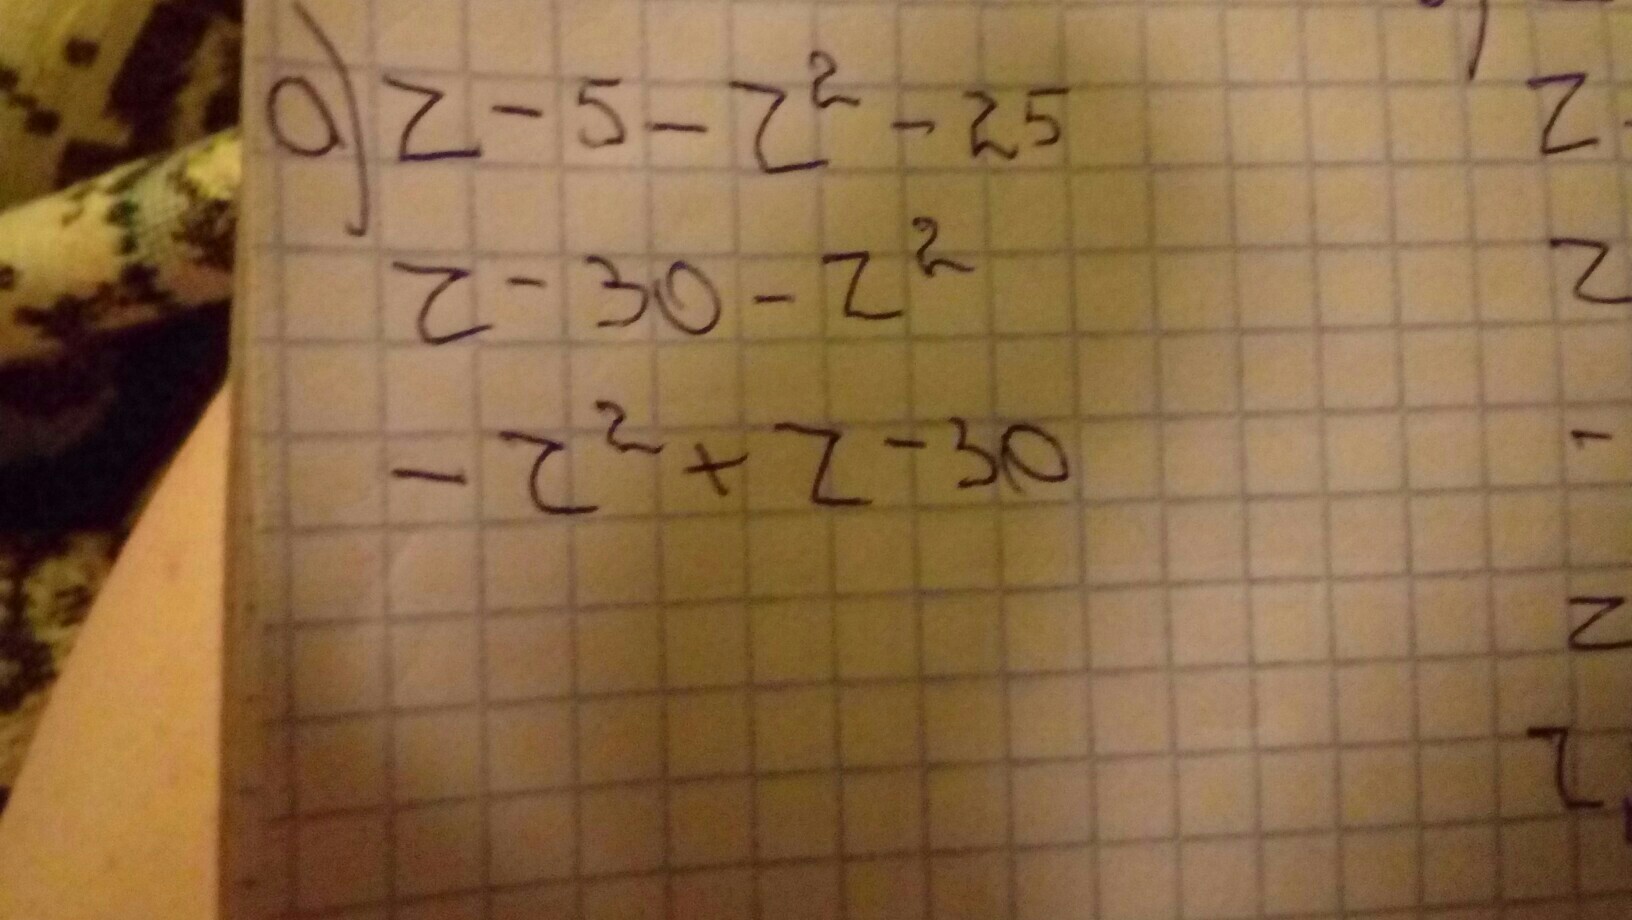 а) z - 5 - z² - 25
z - 30 - z²
- z² + z - 30
z
z
-
z
z